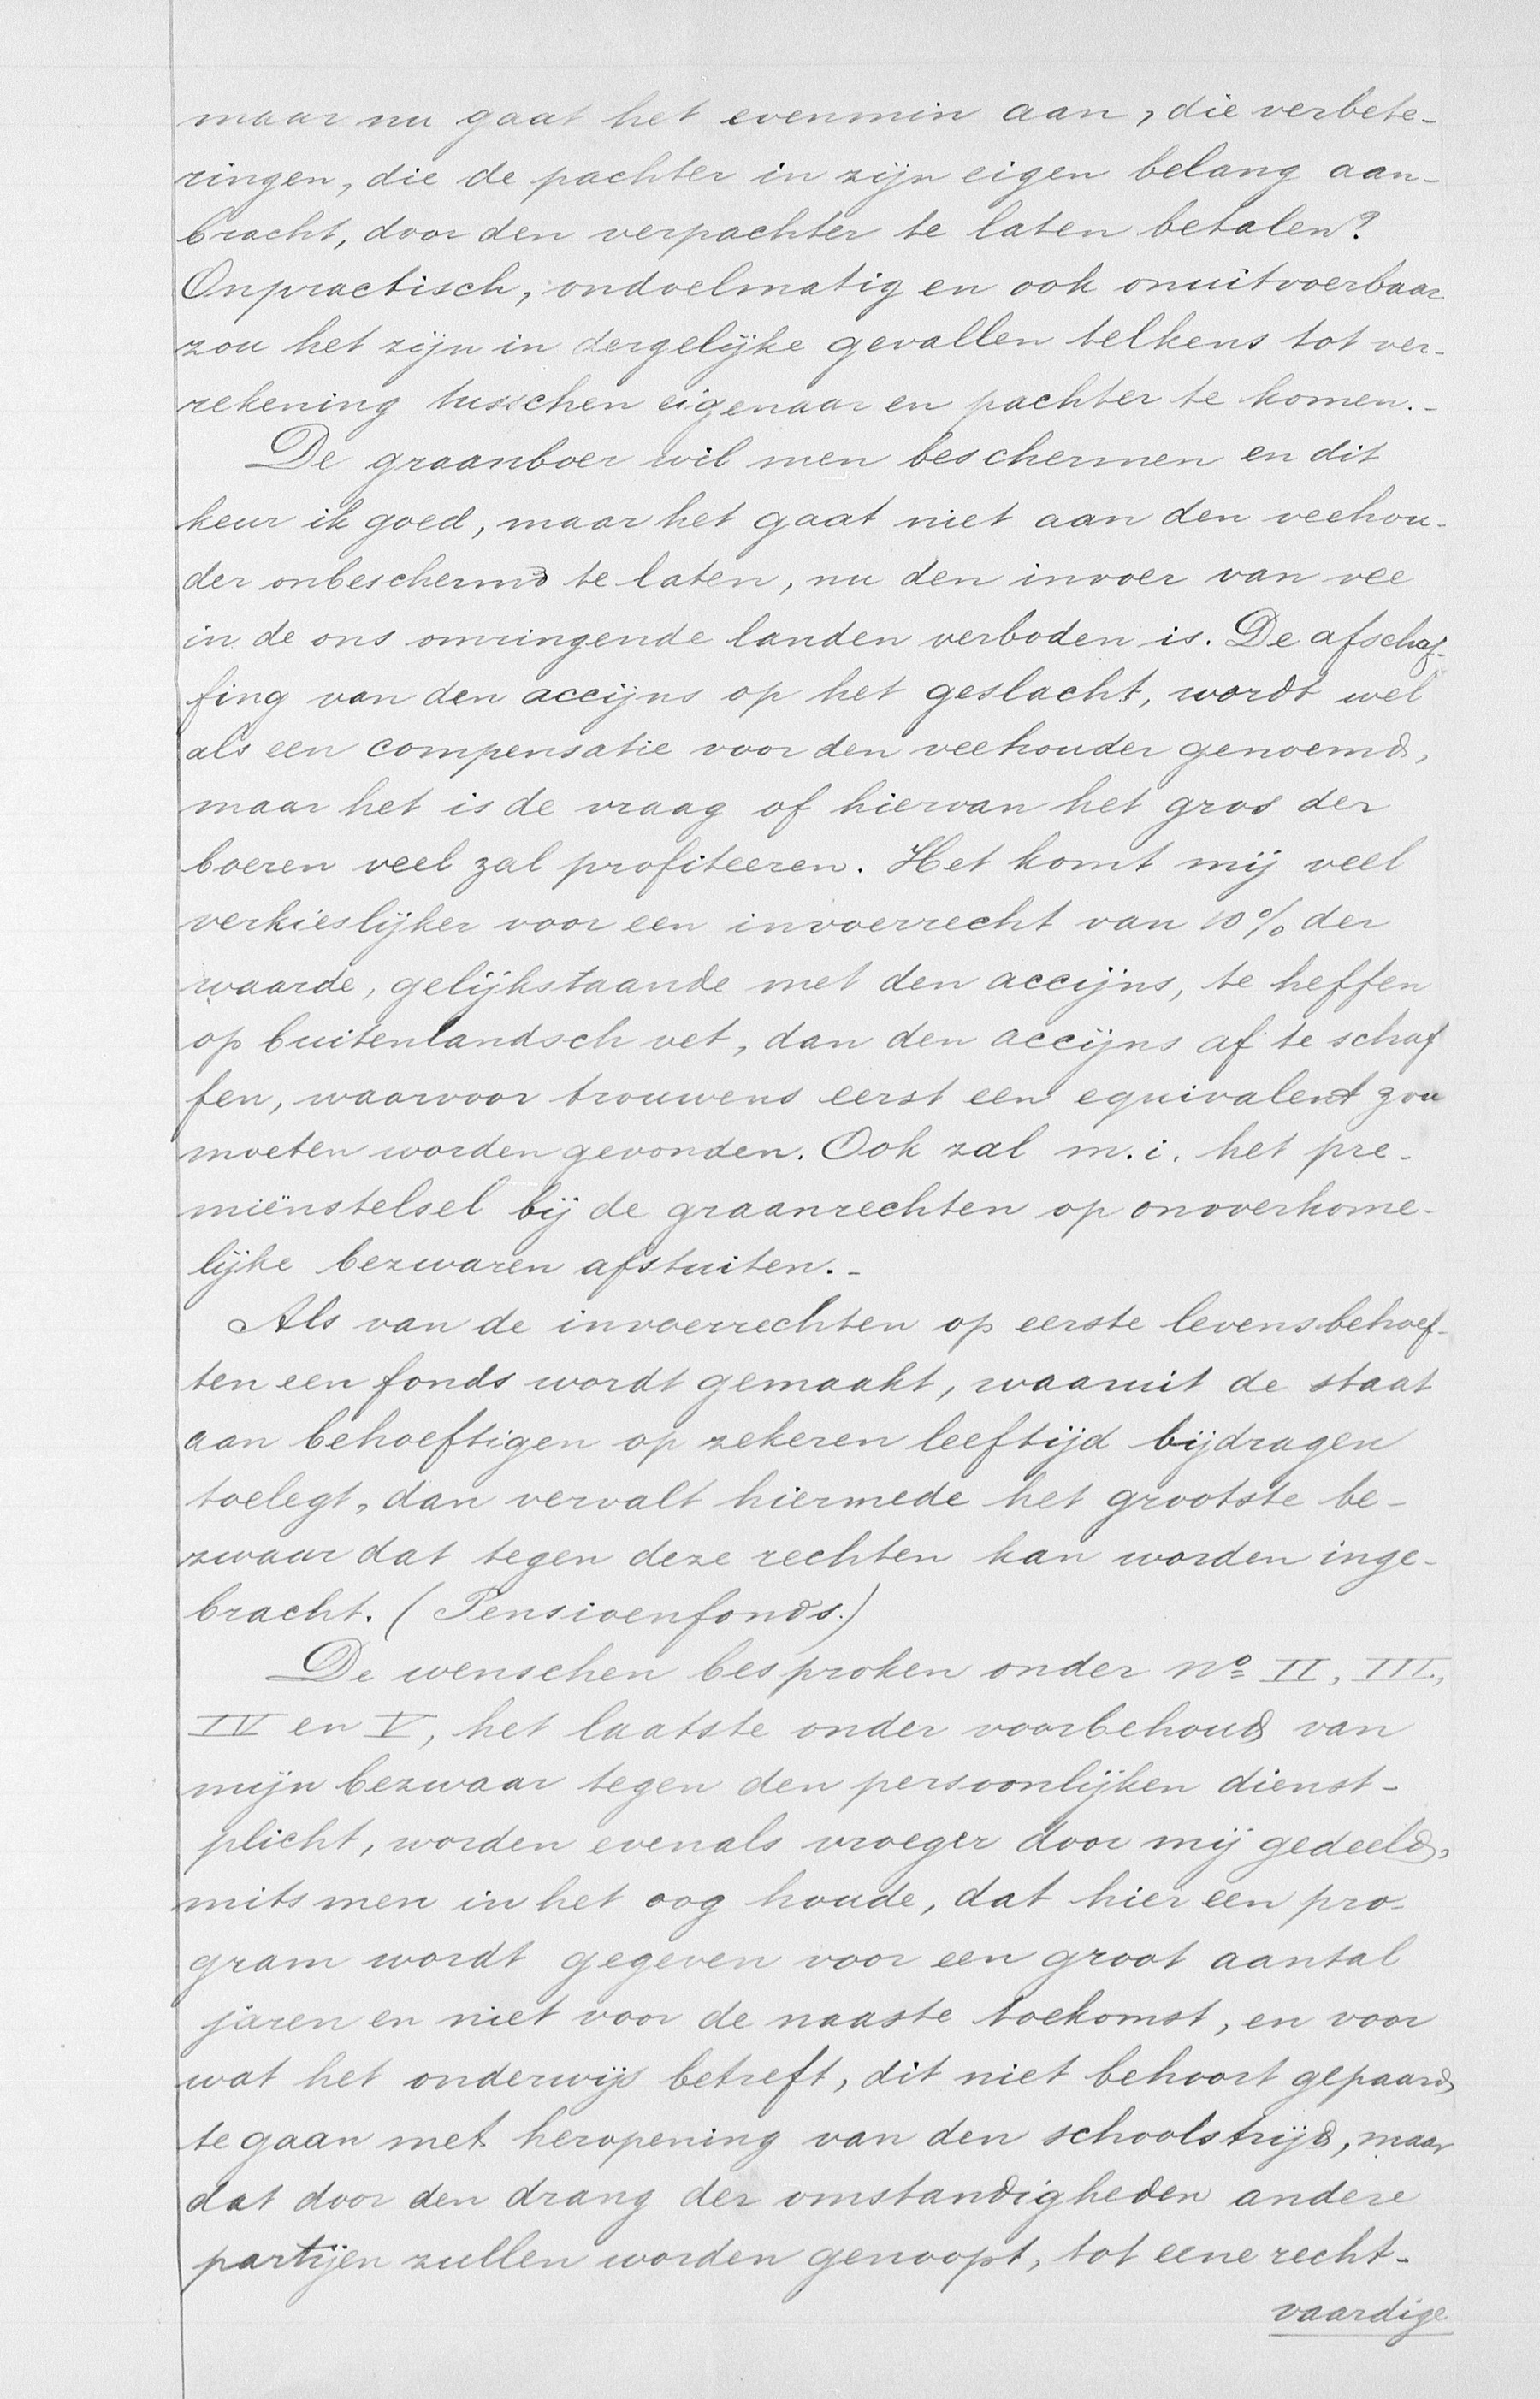 maar nu gaat het evenmin aan, die verbete-
ringen, die de pachter in zijn eigen belang aan-
bracht, door den verpachter te laten betalen?
Onpractisch, ondoelmatig en ook onuitvoerbaar
zou het zijn in dergelijke gevallen telkens tot ver-
rekening tusschen eigenaar en pachter te komen.-
De graanboer wil men beschermen en dit
keur ik goed, maar het gaat niet aan den veehou-
der onbeschermd te laten, nu den invoer van vee
in de ons omringende landen verboden is. De afschaf-
fing van den accijns op het geslacht, wordt wel
als een compensatie voor den veehouder genoemd,
maar het is de vraag of hiervan het gros der
boeren veel zal profiteeren. Het komt mij veel
verkieslijker voor een invoerrecht van 10% der
waarde, gelijkstaande met den accijns, te heffen
op buitenlandsch vet, dan den accijns af te schaf
fen, waarvoor trouwens eerst een equivalent zou
moeten worden gevonden. Ook zal m.i. het pre-
miënstelsel bij de graanrechten op onoverkome-
lijke bezwaren afstuiten.-
Als van de invoerrechten op eerste levensbehoef-
ten een fonds wordt gemaakt, waaruit de staat
aan behoeftigen op zekeren leeftijd bijdragen
toelegt, dan vervalt hiermede het grootste be-
zwaar dat tegen deze rechten kan worden inge-
bracht. (Pensioenfonds.)
De wenschen besproken onder No II, III,
IV en V, het laatste onder voorbehoud van
mijn bezwaar tegen den persoonlijken dienst-
plicht, worden evenals vroeger door mij gedeeld,
mits men in het oog houde, dat hier een pro-
gram wordt gegeven voor een groot aantal
jaren en niet voor de naaste toekomst, en voor
wat het onderwijs betreft, dit niet behoort gepaard
te gaan met heropening van den schoolstrijd, maar
dat door den drang der omstandigheden andere
partijen zullen worden genoopt, tot eene recht-
vaardige